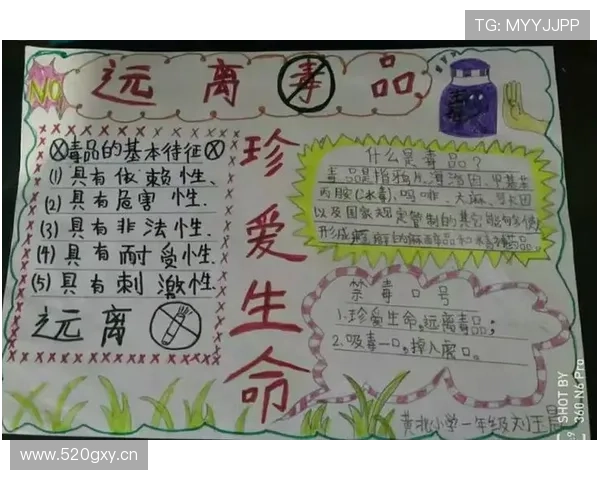 TG: MYYJJPP
NO
远离毒品
毒
珍爱生命
毒品的基本特征
(1) 具有依赖性.
(2) 具有危害性.
(3) 具有非法性.
(4) 具有耐受性.
(5) 具有刺激性.
远离
什么是毒品?
毒品是指鸦片、海洛因、甲基苯
丙胺(冰毒)、吗啡、大麻、可卡因
以及国家规定管制的其它能够使人
形成瘾癖的麻醉药品和精神药品。
禁毒口号
1.珍爱生命,远离毒品;
2.吸毒一口,掉入虎口。
黄北小学一年级刘王
SHOT BY
360 N6 Pro
www.520gxy.cn